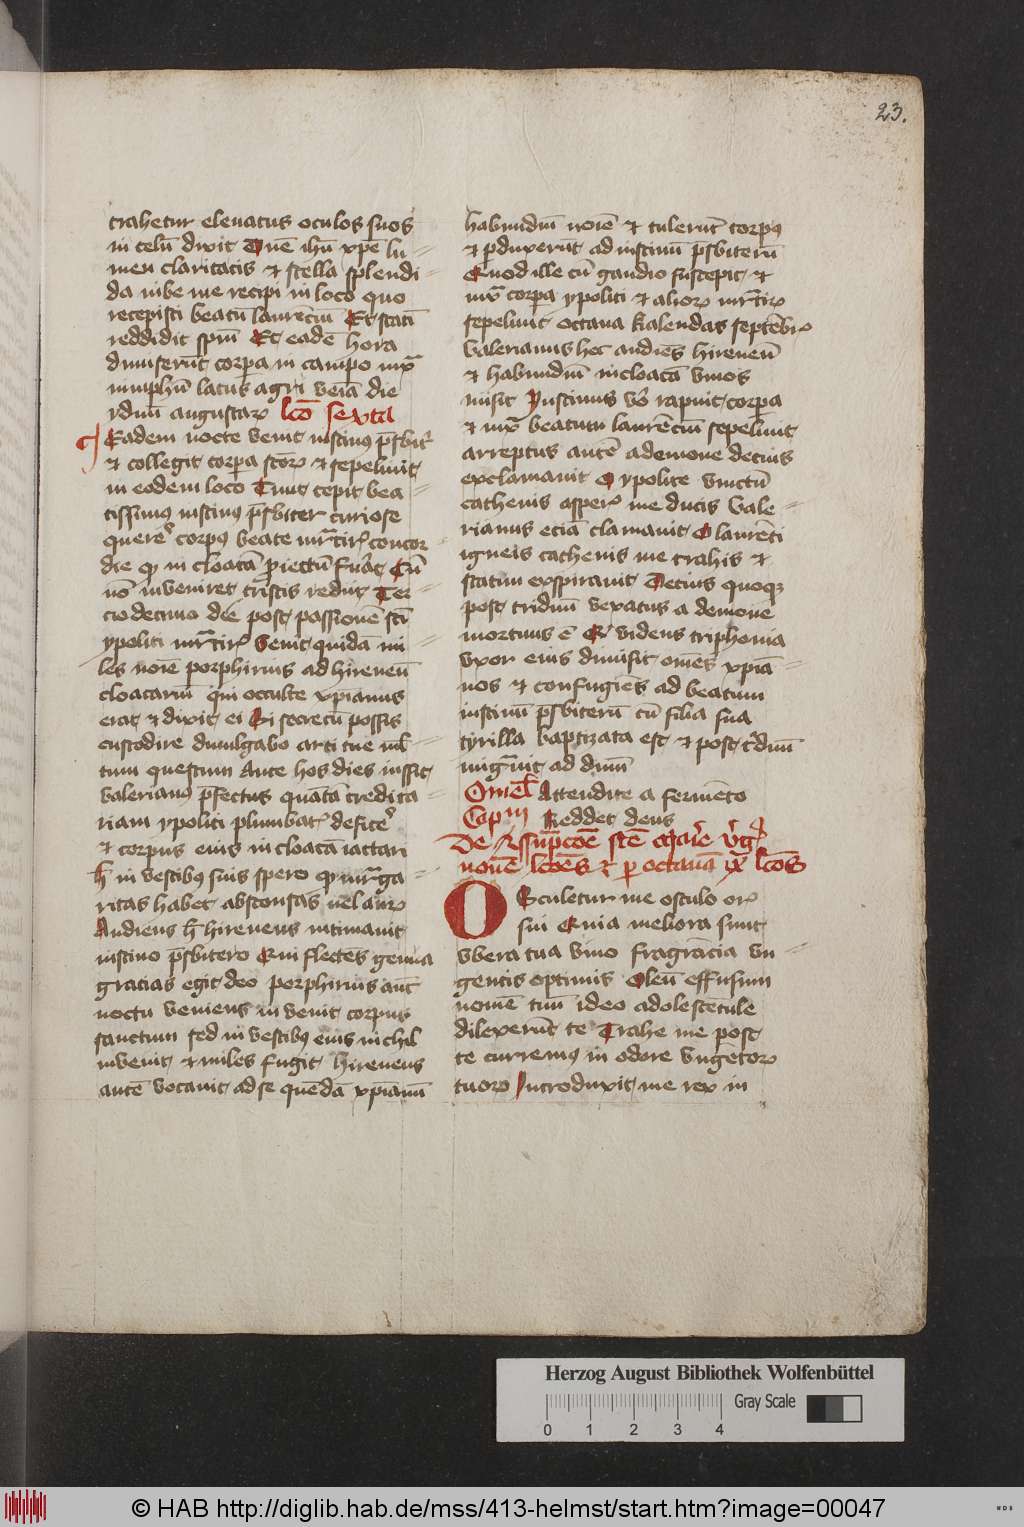 23.
trahetur eleuatus oculos suos
in celū dixit Dn̄e ihū xp̄e lu
men claritatis et stella splendi
da iube me recipi in loco quo
recepisti beatū laurēciū Et statī
reddidit sp̄m Et eadē hora
dimiserūt corpa in campo iuxͣ
nimphū latus agri veiā die
yduū augustaꝝ lc̄o sexta
Eadem nocte venit iustinꝰ p̄sbit̕
et collegit corpa sc̄oꝝ et sepeliuit
in eodem loco Tunc cepit bea
tissimus iustinꝰ p̄sbiter curiose
querē corpꝰ beate mr̄tiris concor
die qꝫ in cloacā ꝓiectū fuāt Cū
nō inveniret tristis redijt Ter
cio decimo die post passionē sc̄i
ypoliti mr̄tiris Venit quidā mi
les noīe porphirius ad hireneū
cloacariū qui occulte xpianus
erat et dixit ei Si secretū possis
custodire diuulgabo arti tue ml̄
tum questum Ante hos dies iussit
valerianꝰ p̄fectus quādā credita
riam ypoliti plumbatis deficē
et corpus eius in cloacā iactari
H̄ in vestibꝰ suis spero qꝫ mr̄ga
ritas habet absconsas vel auꝝ
Audiens h̄ hireneus intimauit
iustino p̄sbitero Qui flectēs genua
gracias egit deo porphirius aut̄
noctu veniens invenit corpus
sanctum sed in vestibꝰ eius nichil
invenit et miles fugit hireneus
autē vocauit ad se quēdā xpianū
habundiū noīe et tulerūt corpꝰ
et ꝑduxerūt ad iustinū p̄sbiterū
Quod ille cū gaudio suscepit et
iuxͣ corpa ypoliti et alioꝝ mr̄tiꝝ
sepeliuit octaua kalendas septēbris
Valerianus hec audiēs hireneū
et habundiū in cloacā viuos
misit Iustinus vō rapuit corpa
et iuxͣ beatum laurēciū sepeliuit
arreptus autē a demone decius
exclamauit O ypolite vinctū
cathenis asperis me ducis Vale
rianus eciā clamauit O laurēti
igneis cathenis me trahis et
statim exspirauit Decius quoqꝫ
post triduū vexatus a demone
mortuus ē Qͦ videns triphonia
vxor eius dimisit om̄es xpia
nos et confugiēs ad beatum
iustinū p̄sbiterū cū filia sua
cyrilla baptizata est et post tͥduū
migrͣuit ad dn̄m
Omel̄ Attendite a fermēto
Capm̄ Reddet deus
De Assūpcōe sc̄e Marie vͥgīs
nouē lc̄oēs et ꝑ octauā ix lc̄oēs
Osculetur me osculo oris
sui Quia meliora sunt
vbera tua vino fragrācia vn
gentis optimis Oleū effusum
nomē tuū ideo adolescētule
dilexerūt te Trahe me post
te curremꝰ in odore vngētoꝝ
tuoꝝ Introduxit me rex in
Herzog August Bibliothek Wolfenbüttel
0 1 2 3 4
Gray Scale
© HAB http://diglib.hab.de/mss/413-helmst/start.htm?image=00047
WDB